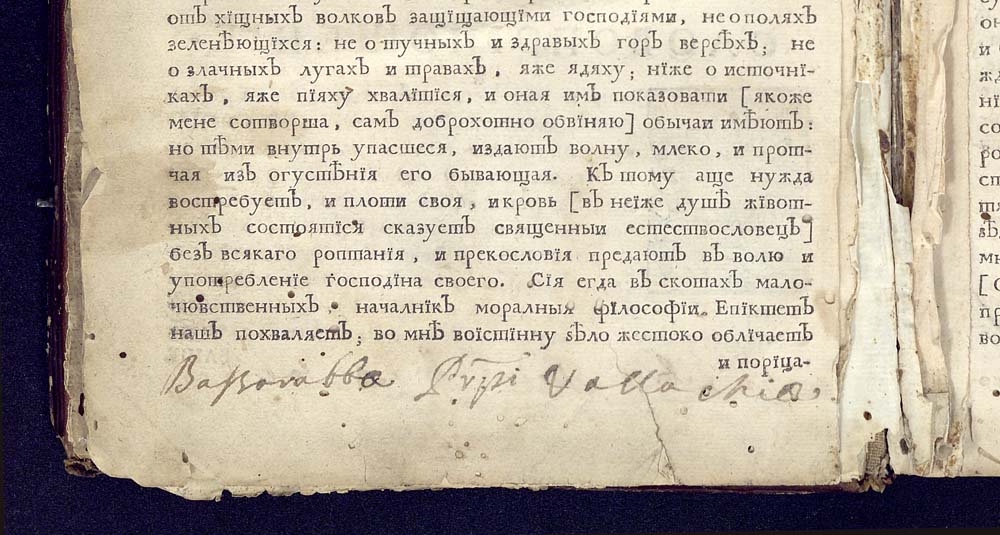 отъ хїщныхъ волковъ защїщающїми господїями, не о поляхъ
зеленѣющїхся: не о тучныхъ и здравыхъ горъ версѣхъ; не
о злачныхъ лугахъ и травахъ, яже ядяху; нїже о источнї-
кахъ, яже пїяху хвалїтїся, и оная имъ показовати [якоже
мене сотворша, самъ доброхотно обвїняю] обычаи имѣютъ:
но тѣми внутрь упасшеся, издаютъ волну, млеко, и прот-
чая изъ огустѣнїя его бывающая. Къ тому аще нужда
востребуетъ, и плоти своя, и кровь [въ неїже душѣ жївот-
ныхъ состоятїся сказуетъ священныи естествословецъ]
безъ всякаго роптанїя, и прекословїя предаютъ въ волю и
употребленїе господїна своего. Сїя егда въ скотахъ мало-
чювственныхъ, началнїкъ моралныя фїлософїи Епїктетъ
нашъ похваляетъ; во мнѣ воїстїнну ѕѣло жестоко облїчаетъ
и порїца-
Bassorabba Prpi Vallachiae.